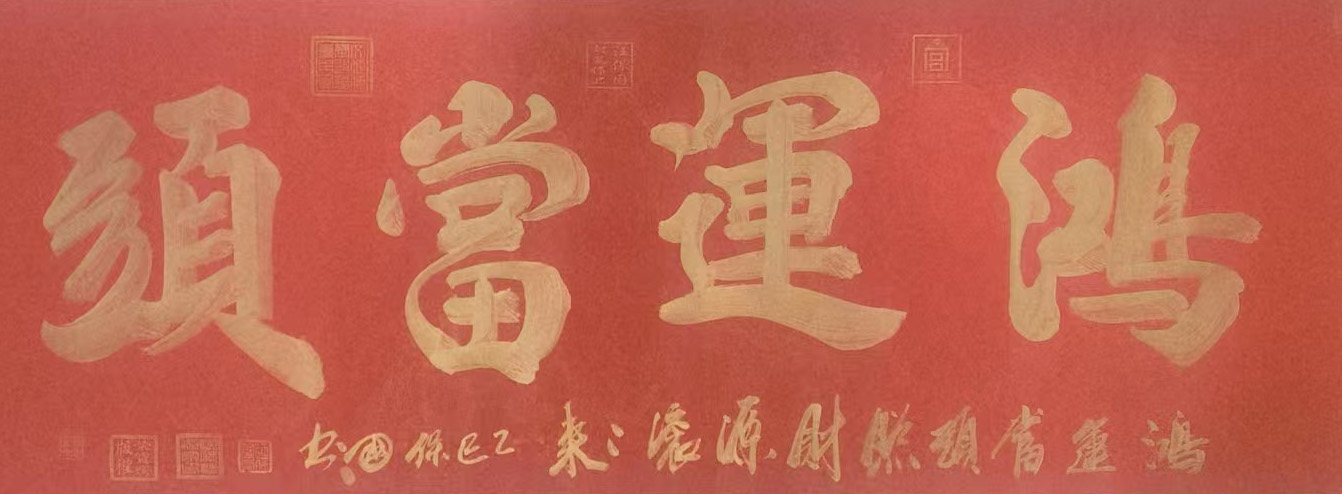 鴻運當頭
鴻運當頭照財源滾〻來乙巳保國書